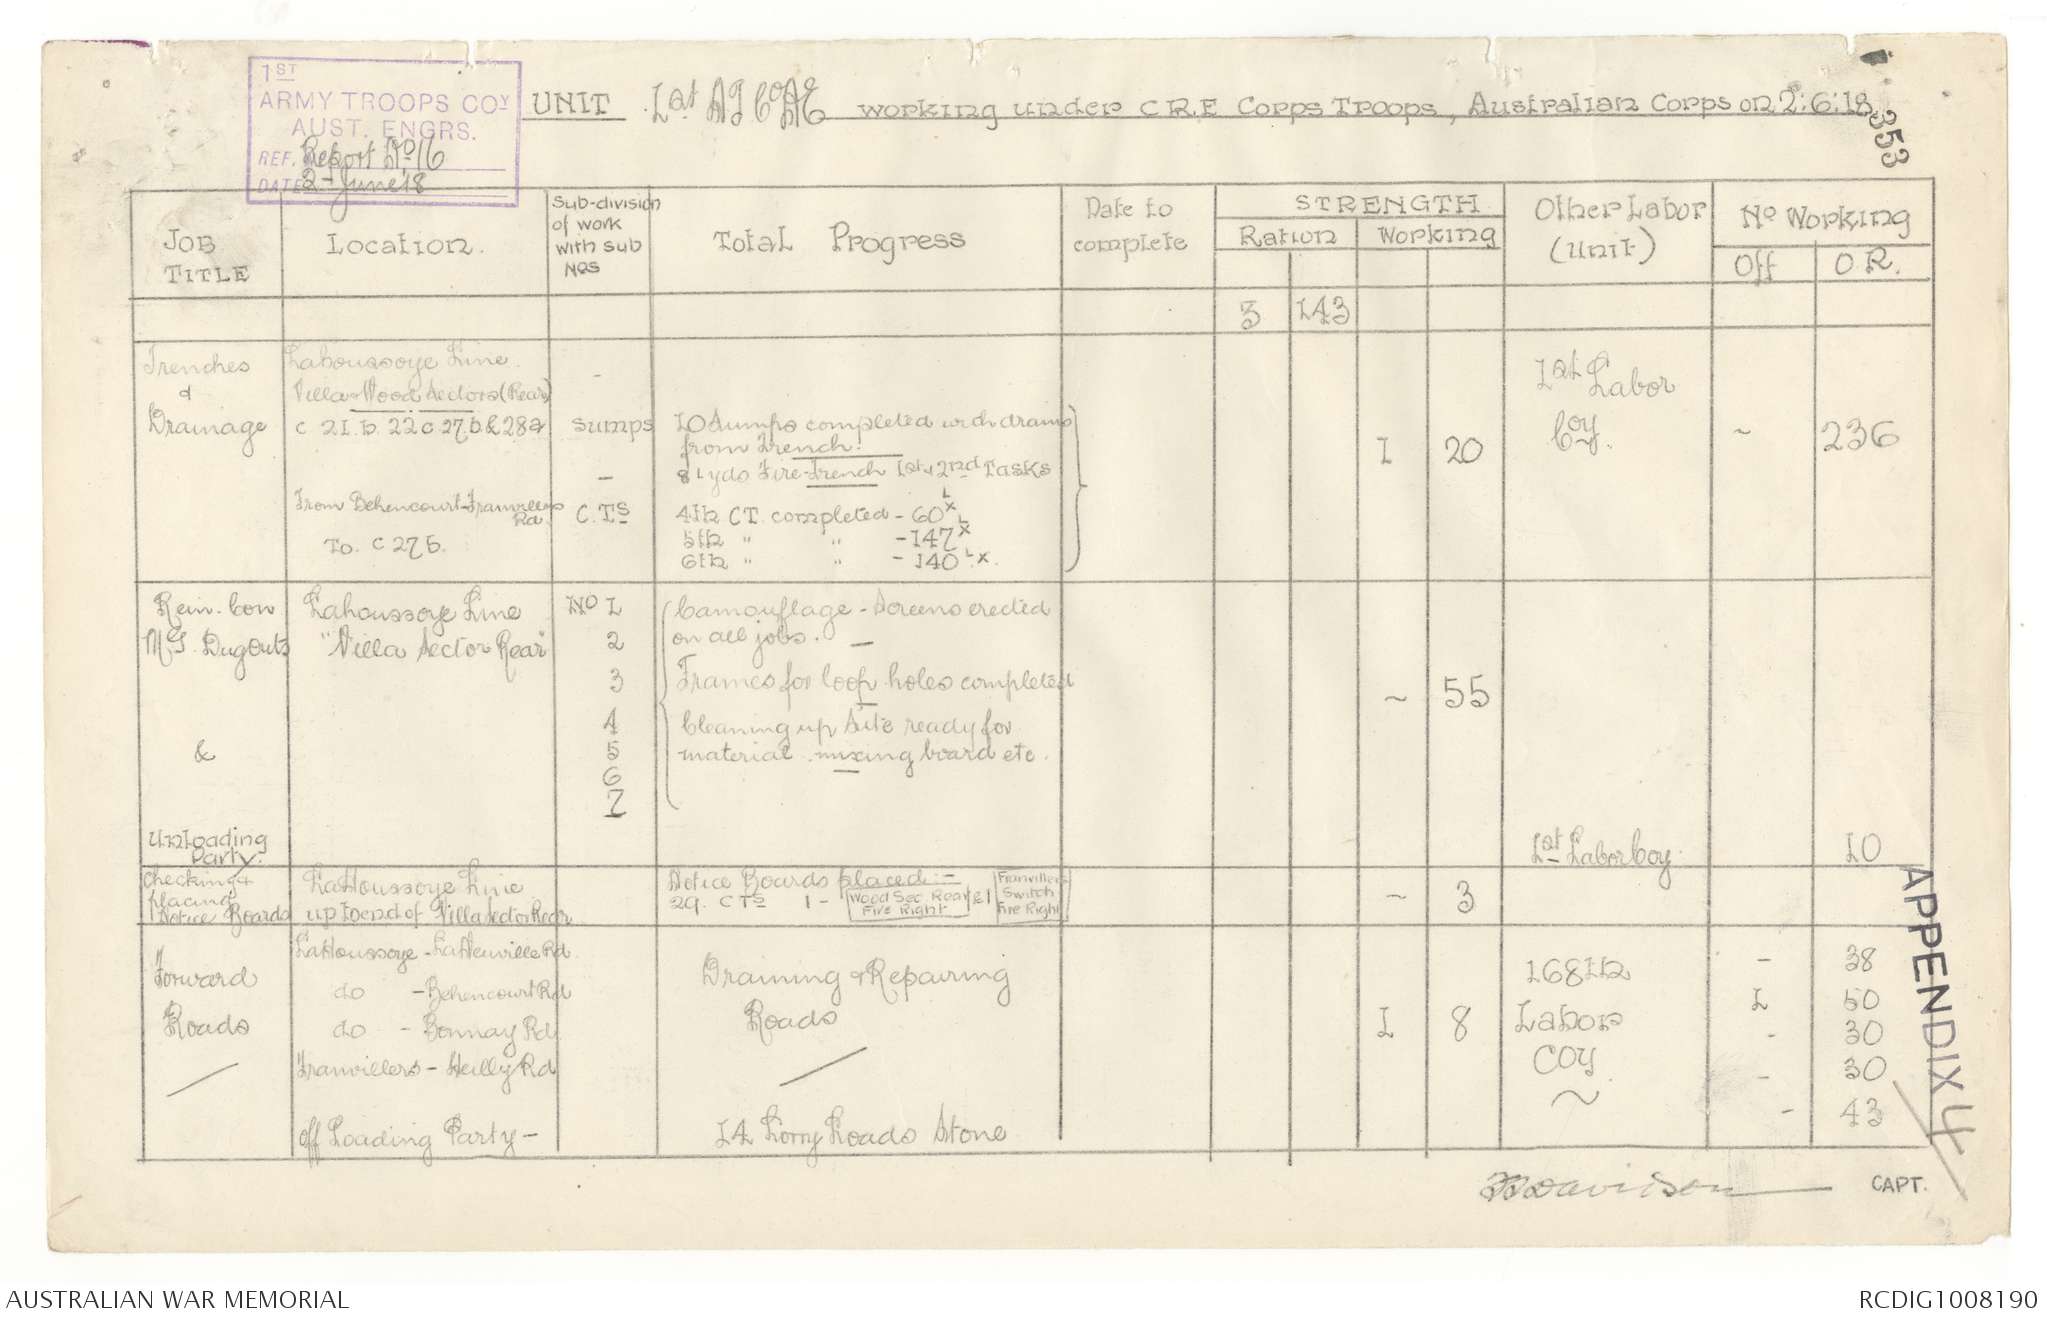 1ST
ARMY TROOPS COY
AUST. ENGRS.
REF. Report No 16
DATE 2- June 18
UNIT 1st AT Co AE working under C.R.E Corps Troops, Australian Corps on 2:6:18
353
JOB TITLE
Location.
Sub-division of work with sub Nos
Total Progress
Date to complete
STRENGTH
Ration
Working
Other Labor (Unit)
No Working
Off
O.R.
3 143
Trenches & Drainage
Lahoussoye Line.
Villa-Wood Sectors (Rear)
c 21.b. 22c 27.b & 28a
Sumps
10 Sumps completed with drains
from Trench.
81 yds Fire-Trench 1st & 2nd Tasks
From Behencourt-Franvillers Rd.
To. c 27b.
C.Ts
4th CT. completed - 60x
5th " " - 147x
6th " " - 140x.
1 20
1st Labor Coy.
~ 236
Rein. Con
M.G. Dugouts
&
Lahoussoye Line
"Villa Sector Rear"
No 1
2
3
4
5
6
7
Camouflage - Screens erected
on all jobs.
Frames for loop holes completed
Cleaning up site ready for
material mixing board etc.
~ 55
Unloading Party.
1st Labor Coy.
10
Checking & placing Notice Boards
LaHoussoye Line
up to end of Villa Sector Rear
Notice Boards placed:-
29. C Ts 1 - Wood Sec. Rear Fire Right & 1 Franvillers Switch Fire Right
~ 3
Forward Roads
LaHoussoye - LaNeuville Rd.
do - Behencourt Rd
do - Bonnay Rd.
Franvillers - Heilly Rd
Off Loading Party -
Draining & Repairing
Roads
14 Lorry Loads Stone
1 8
168th Labor COY
- 38
1 50
- 30
- 30
- 43
Davidson CAPT.
APPENDIX 4
AUSTRALIAN WAR MEMORIAL
RCDIG1008190